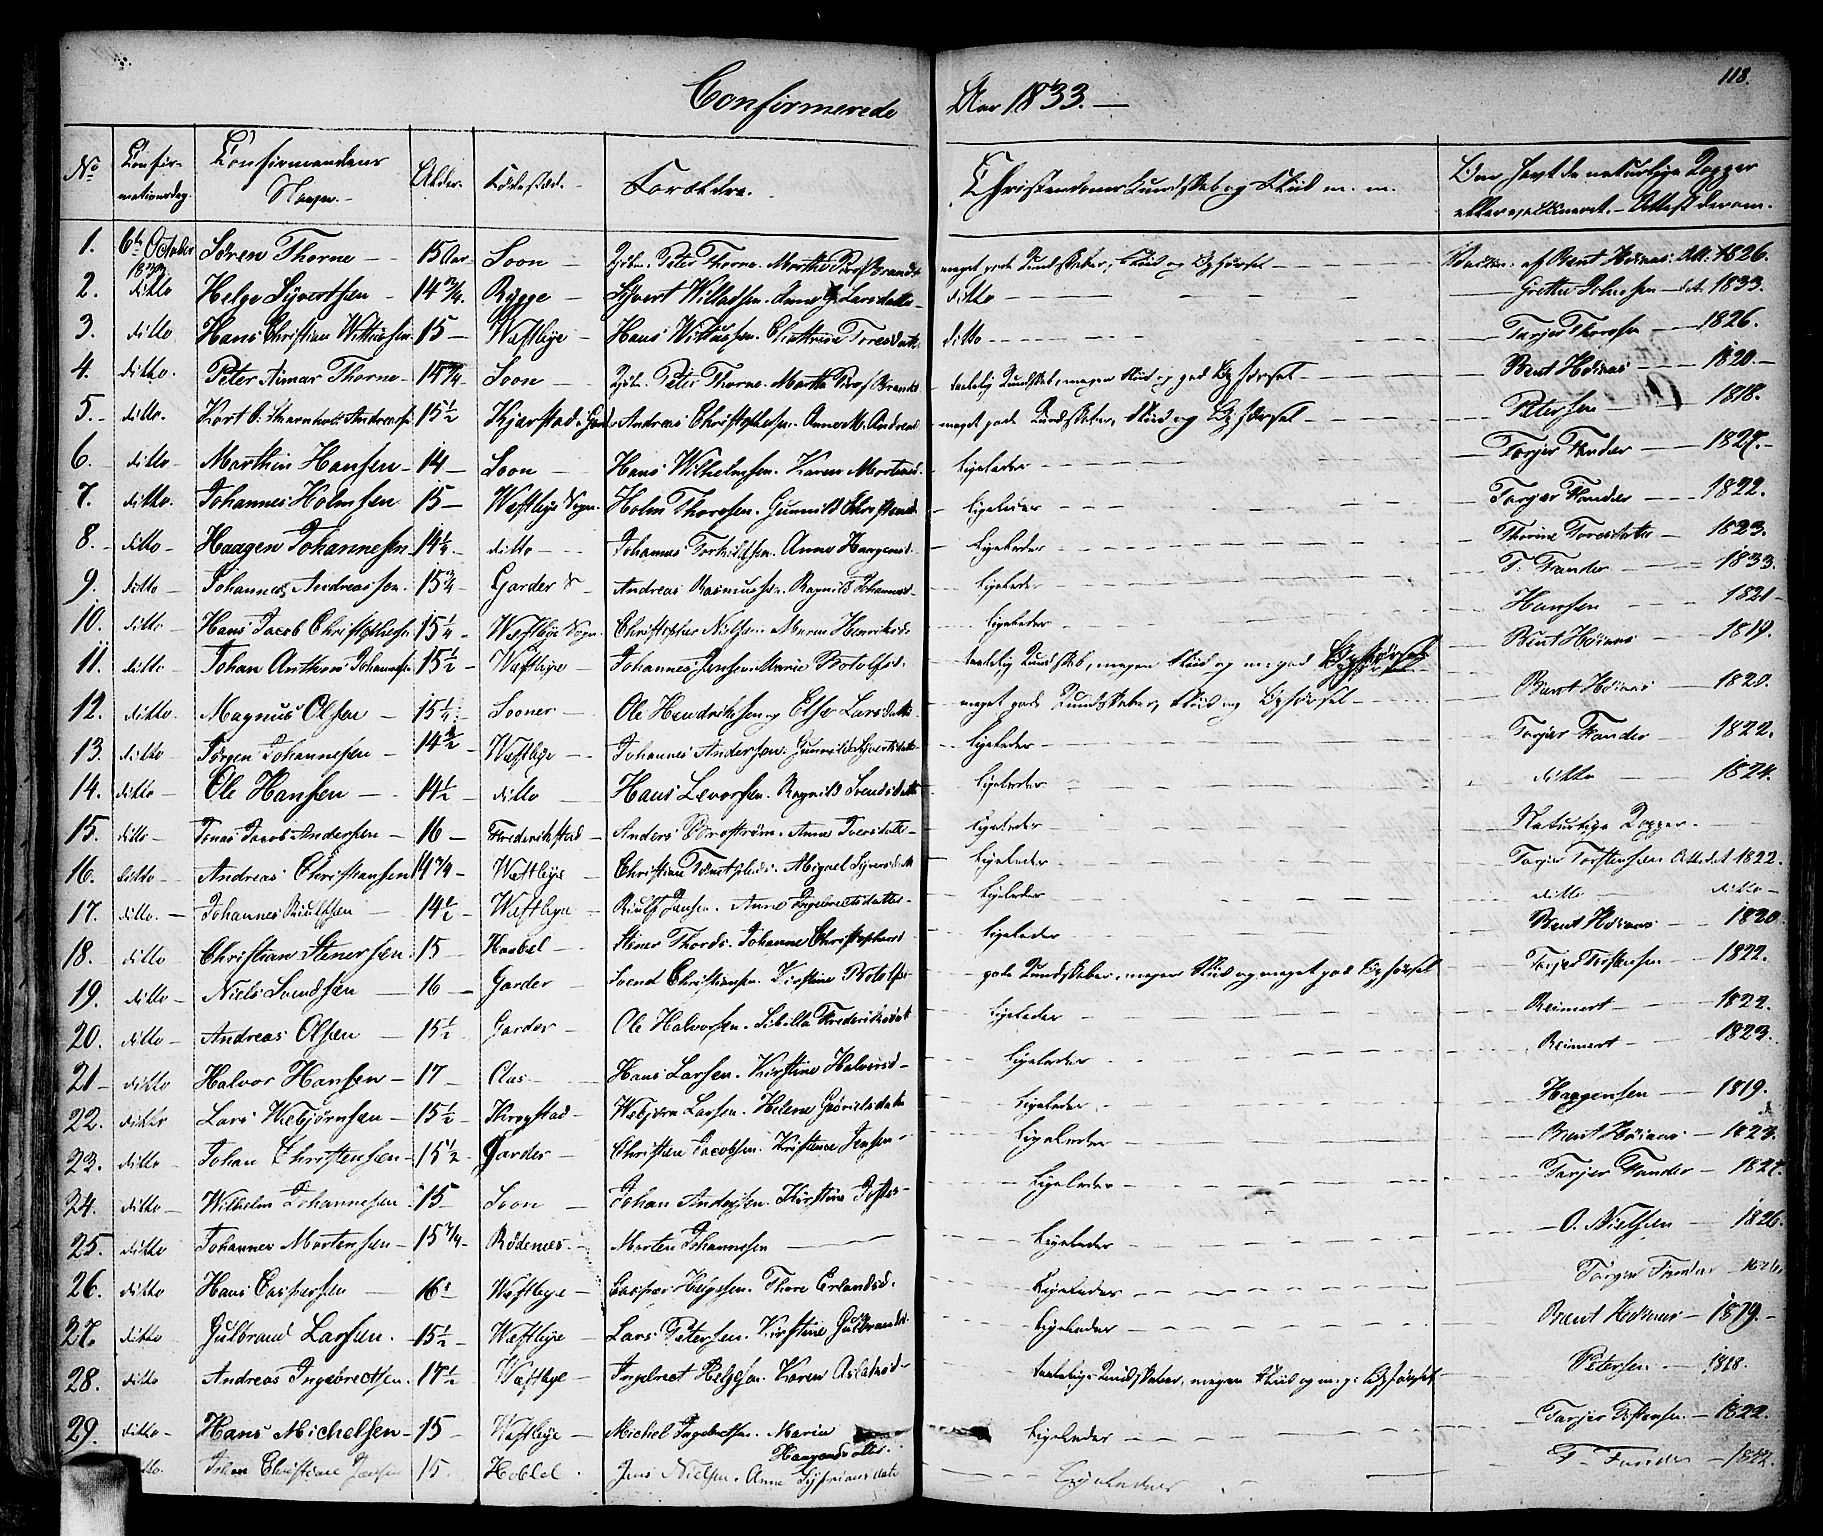 118.
Confirmerede Aar 1833.—
No Confirmationsdag. Confirmandens Navn.— Alder. Fødested. Forældre. Christendoms Kundskab og Flid m. m. Om havt de naturlige Kopper eller vaccineret.— Attest derom.
1. 6te October 1833 Søren Thorne — 15 Aar — Soon — Peter Thorne. Marthe Brandt meget gode Kundskaber, Flid og Opførsel — Vaccin. af Bent Høinæs. Att. 1826.
2. ditto Helge Syvertsen — 14 3/4 — Rygge — Syvert Willadsen. Anne Larsdatter ditto — Grethe Johnsen — dt. 1833.
3. ditto Hans Christian Wittussen. 15 — Westbye — Hans Wittussen. Cathrine Toresdatt. ditto — Tarjer Thoresen — 1826.
4. ditto. Peter Aimar Thorne — 14 3/4 — Soon — Peter Thorne. Marthe Brandt — taalelig Kundskab, megen Flid og god Opførsel — Bent Høinæs — 1820.—
5. ditto. Andersen 15 1/2 Kjærstad i Andreas Christophersen. Anne M. Andersd. meget gode Kundskaber, Flid og Opførsel — Petersen — 1818.
6. — ditto — Marthin Hansen — 14 — Soon — Hans Wilhelmsen. Karen Mortensd. — Ligeledes — Tarjer Fander — 1827.—
7. — ditto. Johannes Holmsen 15 — Westbye Sogn. Holm Thoresen. Gunnild Christensd. — Ligeledes — Tarjer Fander — 1822.
8. — ditto — Haagen Johannesen 14 1/4 — ditto — Johannes Torkildsen. Anne Haagensd. — Ligeledes — Thorine Toresdatter — 1823.
9. ditto — Johannes Andreassen. 15 3/4 Garder Andreas Rasmussen. Ragnild Johannesd. — Ligeledes — T. Fander — 1833.
10. ditto — Hans Jacob Christophersen 15 1/4 — Westbye Sogn. Christopher Nielsen. Maren Henriksd. — Ligeledes — Hansen — 1821 —
11. — ditto — Johan Anthon Johannesen 15 1/2 — Westbye — Johannes Jensen. Marie Botolfsd. taalelig Kundskab, megen Flid og m. god Opførsel — Bent Høinæs — 1819.
12. — ditto. Magnus Olsen — 15 1/4 — Sooner — Ole Hendriksen og Else Larsdatter meget gode Kundskaber, Flid og Opførsel — Bent Høinæs — 1820.
13. ditto — Jørgen Johannesen — 14 1/2 — Westbye — Johannes Andersen. Gunnild Syvertsdatter — Ligeledes — Tarjer Fander — 1822.
14. ditto — Ole Hansen — 14 1/2 — ditto — Hans Levorsen. Ragnild Svendsdatter — Ligeledes — ditto — 1824.
15. ditto — Jonas Jacob Andersen — 16 — Frederikstad — Anders Brostrøm. Anne Iversdatter — Ligeledes — Naturlige Kopper.—
16. ditto — Andreas Christiansen 14 3/4 — Westbye — Christian Abigael Syversd. — Ligeledes — Tarjer Torstensen Attestet 1822.
17. ditto. — Johannes Riulfsen 14 1/2 — Westbye — Riulf Jensen. Anne Ingebretsdatter — Ligeledes — ditto — ditto —
18. ditto Christian Stenersen. 15 — Haabel — Stener Thords. Johanne Christophersd. — Ligeledes — Bent Høinæs — 1820
19. ditto — Niels Svendsen — 16 — Garder — Svend Christiansen. Kirstine Botolfs. — gode Kundskaber, megen Flid og meget god Opførsel — Tarjer Torstensen — 1822.
20. ditto — Andreas Olsen — 15 1/2 — Garder — Ole Halvorsen. Sibilla Frederiksdatt — Ligeledes — Reimert — 1822.
21 — ditto Halvor Hansen — 17 — Aas — Hans Larsen. Kirstine Halvorsd — Ligeledes — Reimert — 1823.
22. ditto Lars Webjørnsen — 15 1/2 — Krogstad — Webjørn Larsen. Helene — Ligeledes — Haagensen — 1819.
23. ditto — Johan Christensen — 15 1/2 — Garder — Christen Jacobsen. Kirstence Jensen — Ligeledes — Bent Høinæs — 1823.
24. ditto — Wilhelm Johannesen — 15 — Soon — Johan Andersen. Kirstine — Ligeledes — Tarjer Fander — 1827.
25. ditto Johannes Mortensen — 15 3/4 — Rødenæs — Morten Johannesen — Ligeledes — O. Nielsen — 1826.
26. ditto Hans Caspersen — 16 — Westbye — Casper Helgesen. Thore Erlandsd. — Ligeledes — Tarjer Fander — 1826
27. ditto Gulbrand Larsen. 15 1/2 — Westbye — Lars Petersen. Kirstine Gulbrandsd. — Ligeledes — Bent Høinæs — 1819.—
28. ditto Andreas Ingebrectsen. 17 1/2 — Westbye — Ingebret Helgesen. Karen Aslaksd — taalelige Kundskaber, megen Flid og m. g. Opførsel. Petersen — 1818.
29. ditto — Hans Michelsen — 15 — Westbye — Michel Ingebretsen. Maria Haagensdatter. — Ligeledes — Tarjer Torstensen — 1822.
ditto. Johan Christian Jensen 15. Hobbel. Jens Nielsen. Anne Syfriansdatt — Ligeledes — T. Fander — 1822.